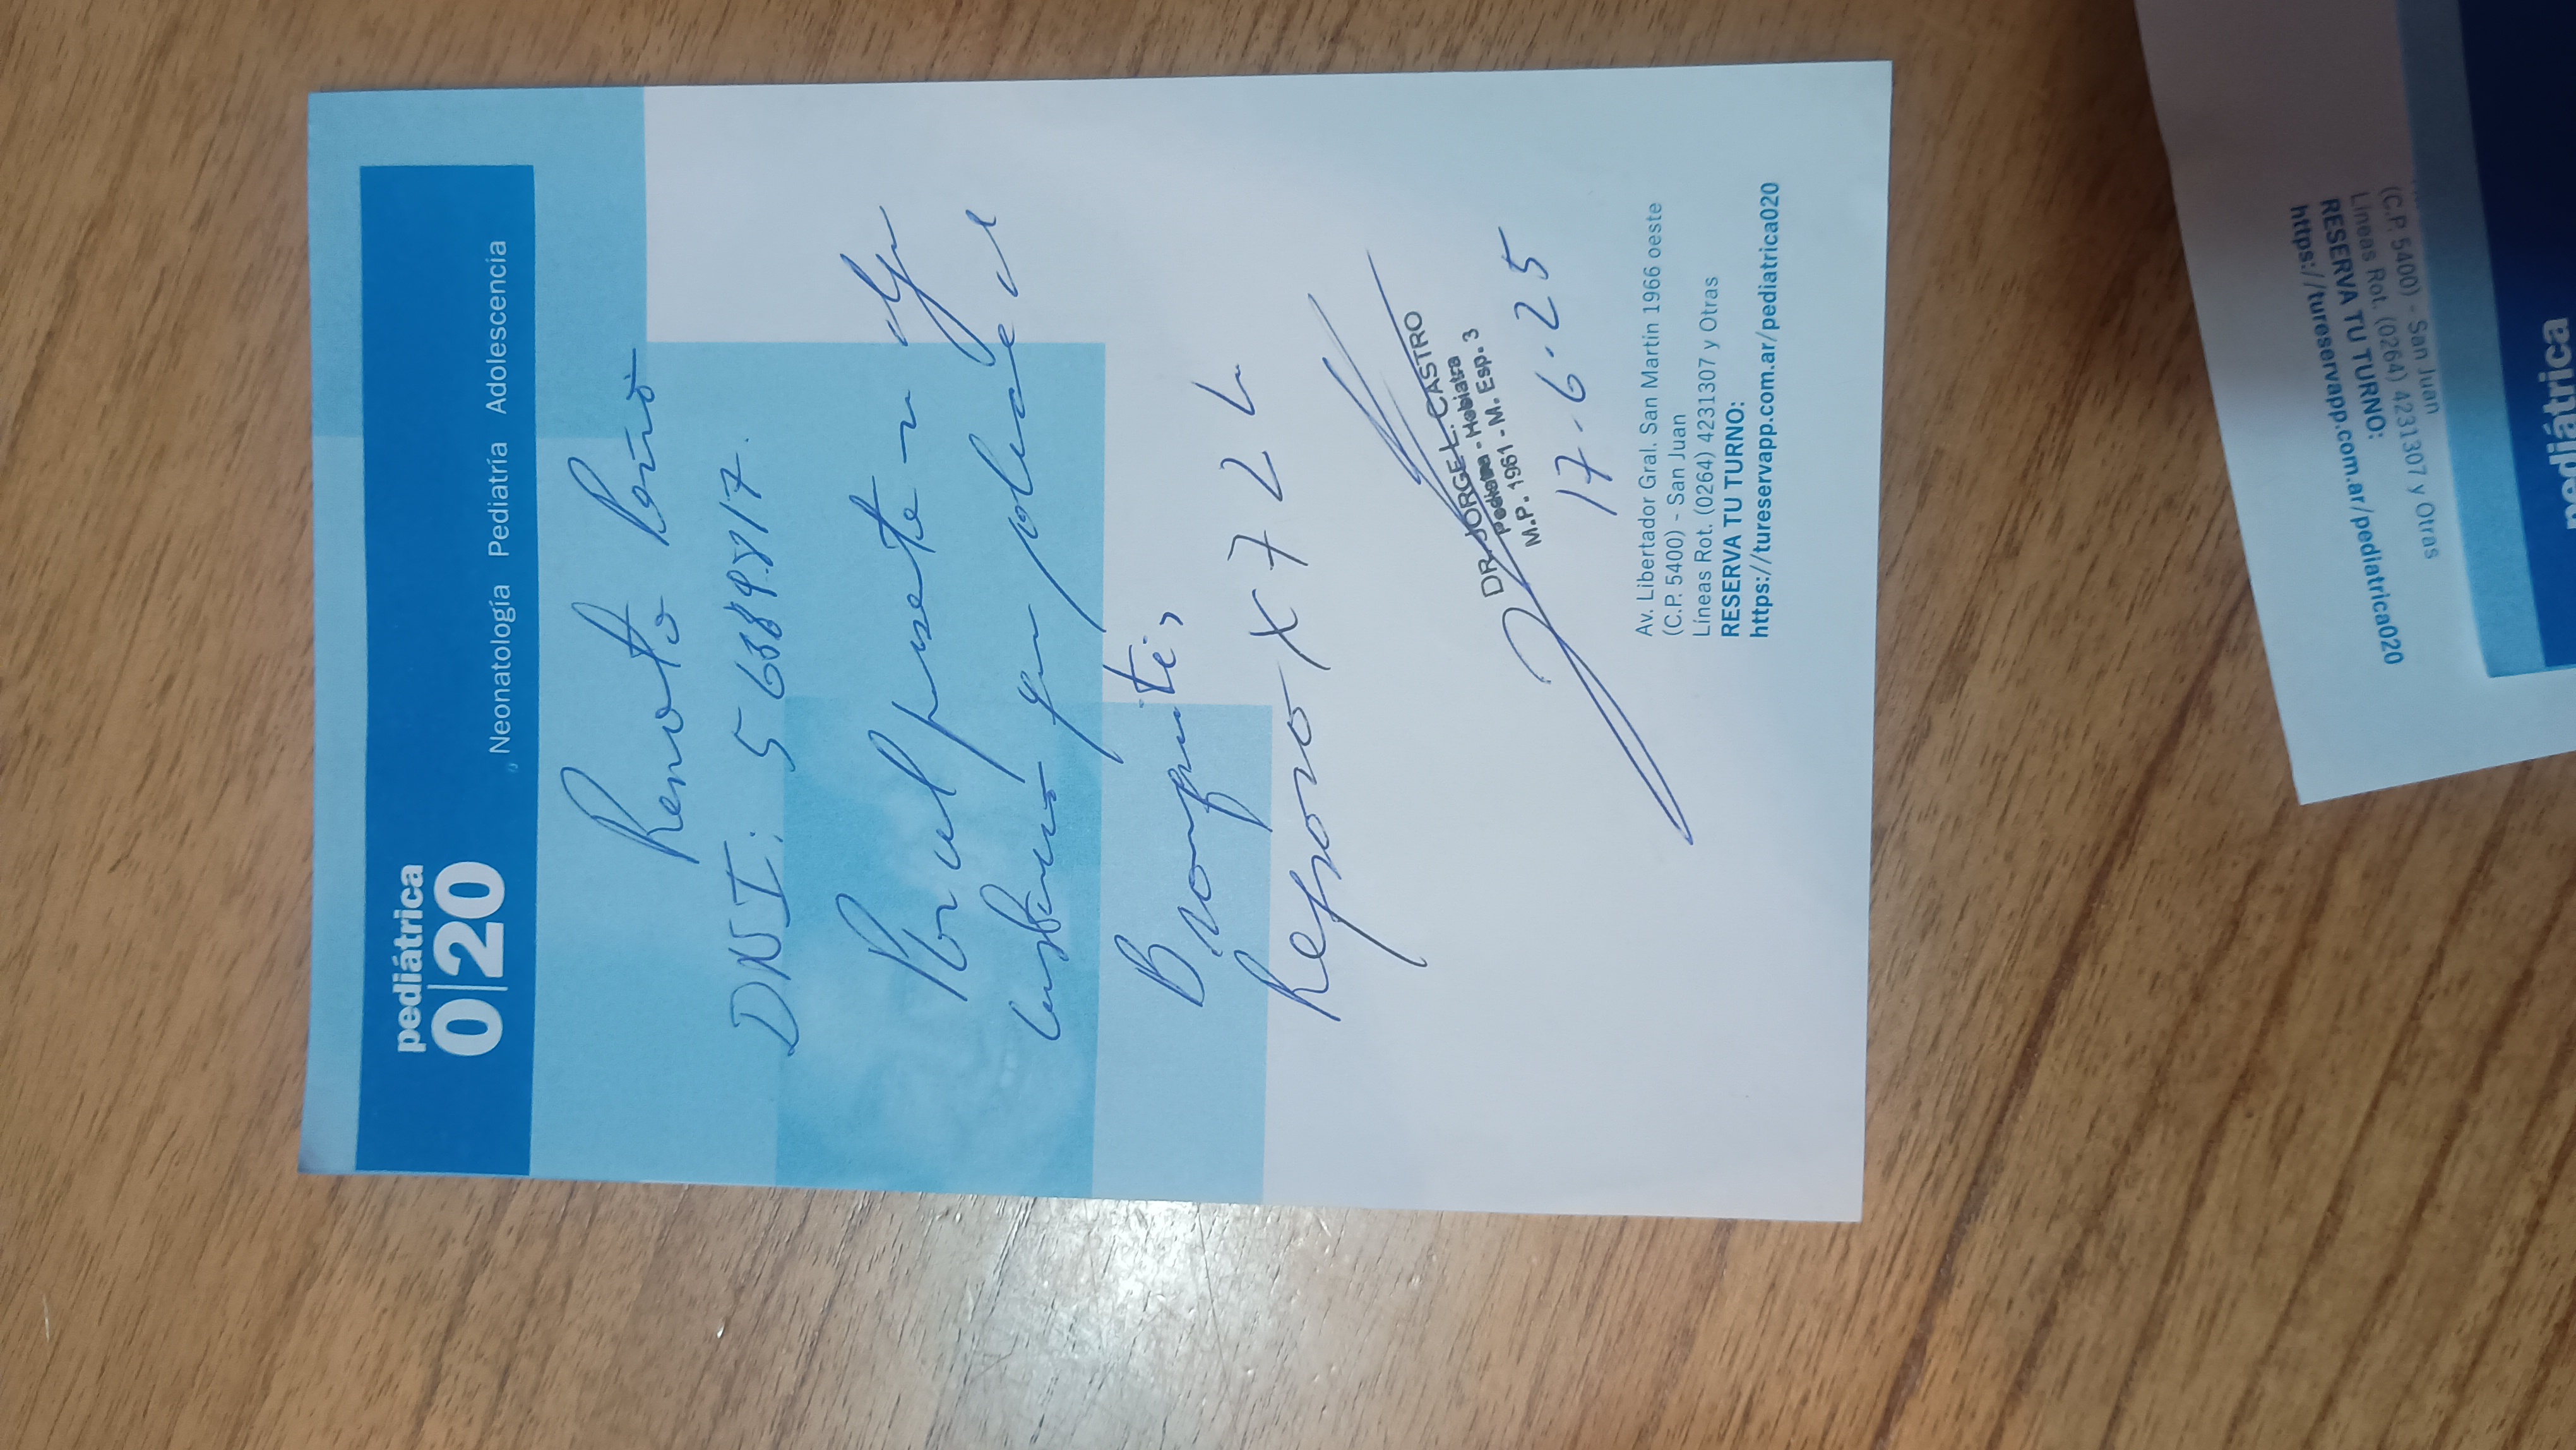 pediátrica
0|20
Neonatología Pediatría Adolescencia
Renato
DNI:
Por el presente
que padece de
Bronquitis
Reposo x 72 h
DR. JORGE L. CASTRO
Pediatra - Hebiatra
M.P. 1961 - M. Esp. 3
17-6-25
Av. Libertador Gral. San Martín 1966 oeste
(C.P. 5400) - San Juan
Líneas Rot. (0264) 4231307 y Otras
RESERVA TU TURNO:
https://tureservapp.com.ar/pediatrica020
(C.P. 5400) - San Juan
Líneas Rot. (0264) 4231307 y Otras
RESERVA TU TURNO:
https://tureservapp.com.ar/pediatrica020
pediátrica